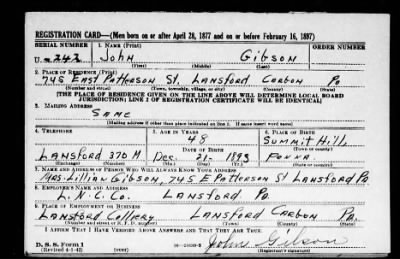 REGISTRATION CARD—(Men born on or after April 28, 1877 and on or before February 16, 1897)
SERIAL NUMBER 1. NAME (Print) ORDER NUMBER
U 242 John Gibson
(First) (Middle) (Last)
2. PLACE OF RESIDENCE (Print)
745 East Patterson St. Lansford Carbon Pa
(Number and street) (Town, township, village, or city) (County) (State)
[THE PLACE OF RESIDENCE GIVEN ON THE LINE ABOVE WILL DETERMINE LOCAL BOARD
JURISDICTION; LINE 2 OF REGISTRATION CERTIFICATE WILL BE IDENTICAL]
3. MAILING ADDRESS
Same
[Mailing address if other than place indicated on line 2. If same insert word same]
4. TELEPHONE 5. AGE IN YEARS 6. PLACE OF BIRTH
48 Summit Hill
DATE OF BIRTH (Town or county)
Lansford 370 M Dec. 21- 1893 Penna
(Exchange) (Number) (Mo.) (Day) (Yr.) (State or country)
7. NAME AND ADDRESS OF PERSON WHO WILL ALWAYS KNOW YOUR ADDRESS
Mrs. Lillian Gibson, 745 E Patterson St Lansford Pa
8. EMPLOYER'S NAME AND ADDRESS
L.N.C. Co. Lansford Pa.
9. PLACE OF EMPLOYMENT OR BUSINESS
Lansford Colliery Lansford Carbon Pa.
(Number and street or R. F. D. number) (Town) (County) (State)
I AFFIRM THAT I HAVE VERIFIED ABOVE ANSWERS AND THAT THEY ARE TRUE.
D. S. S. Form 1 John Gibson
(Revised 4-1-42) (over)